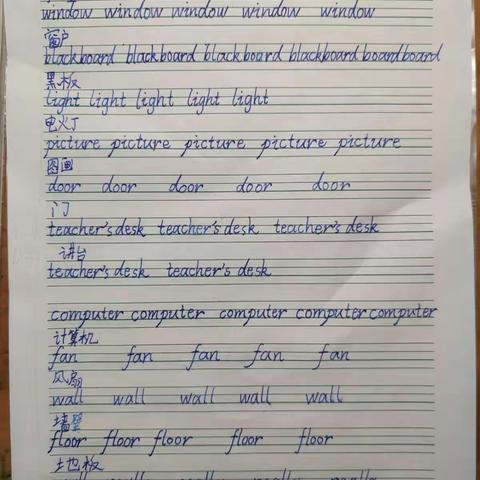 window window window window window
窗户
blackboard blackboard blackboard blackboard boardboard
黑板
light light light light light
电火丁
picture picture picture picture picture
图画
door door door door door
门
teacher's desk teacher's desk teacher's desk
讲台
teacher's desk teacher's desk
computer computer computer computer computer
计算机
fan fan fan fan fan
风扇
wall wall wall wall wall
墙壁
floor floor floor floor floor
土地板
really really really really really